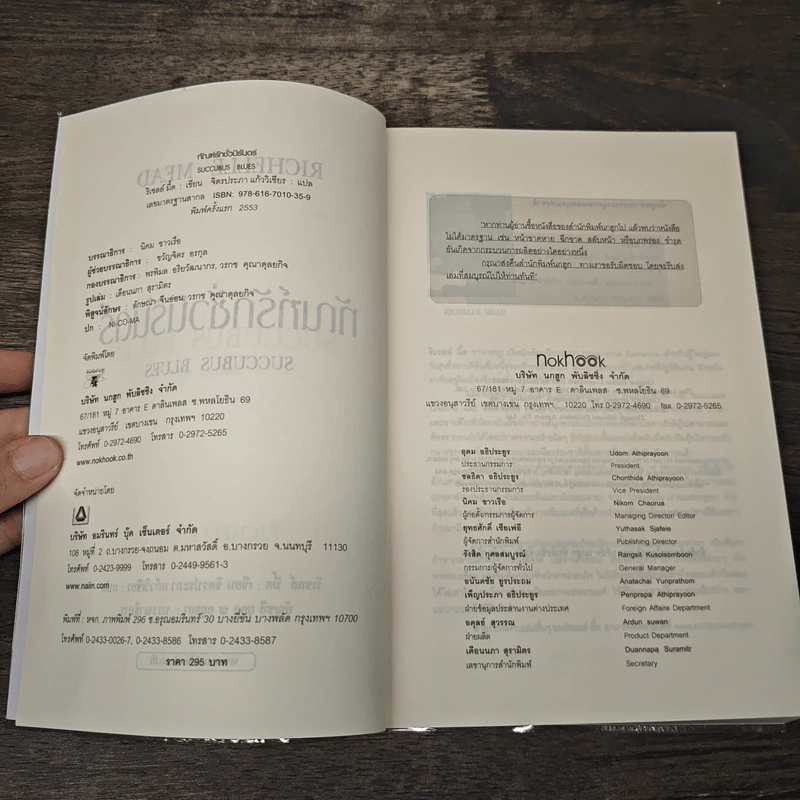 ทัณฑ์รักชั่วนิรันดร์
SUCCUBUS BLUES
ริเชลล์ มี้ด : เขียน จิตรประภา แก้ววิเชียร : แปล
เลขมาตรฐานสากล ISBN: 978-616-7010-35-9
พิมพ์ครั้งแรก 2553
บรรณาธิการ : นิคม ชาวเรือ
ผู้ช่วยบรรณาธิการ : ขวัญจิตร อรกุล
กองบรรณาธิการ : พรพิมล อริยวัฒนากร, วรกช คุณาดุลยกิจ
รูปเล่ม : เดือนนภา สุรามิตร
พิสูจน์อักษร : ลักษณา จีนอ่อน, วรกช คุณาดุลยกิจ
ปก : NI-CO-MA
จัดพิมพ์โดย
บริษัท นกฮูก พับลิชชิ่ง จำกัด
67/181 หมู่ 7 อาคาร E ตาลินเพลส ซ.พหลโยธิน 69
แขวงอนุสาวรีย์ เขตบางเขน กรุงเทพฯ 10220
โทรศัพท์ 0-2972-4690 โทรสาร 0-2972-5265
www.nokhook.co.th
จัดจำหน่ายโดย
บริษัท อมรินทร์ บุ๊ค เซ็นเตอร์ จำกัด
108 หมู่ที่ 2 ถ.บางกรวย-จงถนอม ต.มหาสวัสดิ์ อ.บางกรวย จ.นนทบุรี 11130
โทรศัพท์ 0-2423-9999 โทรสาร 0-2449-9561-3
www.naiin.com
พิมพ์ที่ : หจก. ภาพพิมพ์ 296 ซ.อรุณอมรินทร์ 30 บางยี่ขัน บางพลัด กรุงเทพฯ 10700
โทรศัพท์ 0-2433-0026-7, 0-2433-8586 โทรสาร 0-2433-8587
ราคา 295 บาท
"หากท่านผู้อ่านซื้อหนังสือของสำนักพิมพ์นกฮูกไป แล้วพบว่าหนังสือ
ไม่ได้มาตรฐาน เช่น หน้าขาดหาย ฉีกขาด สลับหน้า หรือบกพร่อง ชำรุด
อันเกิดจากกระบวนการผลิตอย่างใดอย่างหนึ่ง
กรุณาส่งคืนสำนักพิมพ์นกฮูก ทางเราขอรับผิดชอบ โดยจะรีบส่ง
เล่มที่สมบูรณ์ไปให้ท่านทันที"
nokhook
บริษัท นกฮูก พับลิชชิ่ง จำกัด
67/181 หมู่ 7 อาคาร E ตาลินเพลส ซ.พหลโยธิน 69
แขวงอนุสาวรีย์ เขตบางเขน กรุงเทพฯ 10220 โทร.0-2972-4690 fax 0-2972-5265
อุดม อธิประยูร Udom Athiprayoon
ประธานกรรมการ President
ชลธิดา อธิประยูร Chonthida Athiprayoon
รองประธานกรรมการ Vice President
นิคม ชาวเรือ Nikom Chaorua
ผู้ก่อตั้งกรรมการผู้จัดการ Managing Director/ Editor
ยุทธศักดิ์ เชียเฟอี Yuthasak Sjafeie
ผู้จัดการสำนักพิมพ์ Publishing Director
รังสิต กุศลสมบูรณ์ Rangsit Kusolsomboon
กรรมการผู้จัดการทั่วไป General Manager
อนันตชัย ยูรประถม Anatachai Yunprathom
เพ็ญประภา อธิประยูร Penprapa Athiprayoon
ฝ่ายข้อมูลประสานงานต่างประเทศ Foreign Affaire Department
อดุลย์ สุวรรณ Ardun suwan
ฝ่ายผลิต Product Department
เดือนนภา สุรามิตร Duannapa Suramitr
เลขานุการสำนักพิมพ์ Secretary